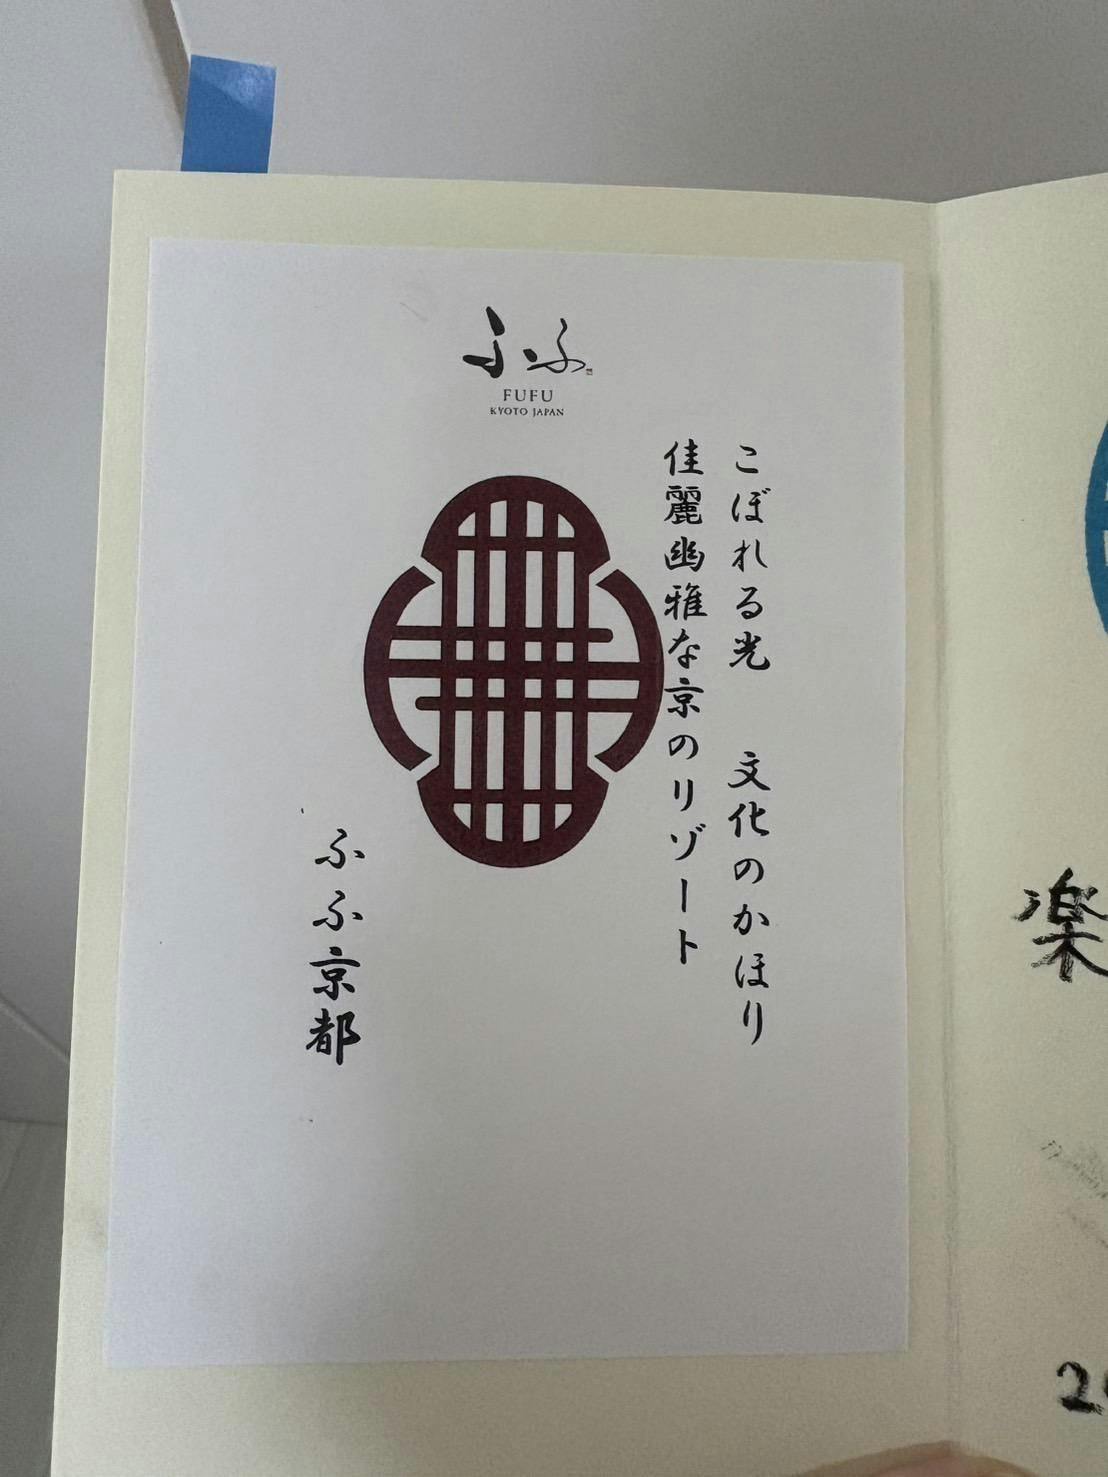 ふふ
FUFU
KYOTO JAPAN
こぼれる光 文化のかほり
佳麗幽雅な京のリゾート
ふふ京都
楽